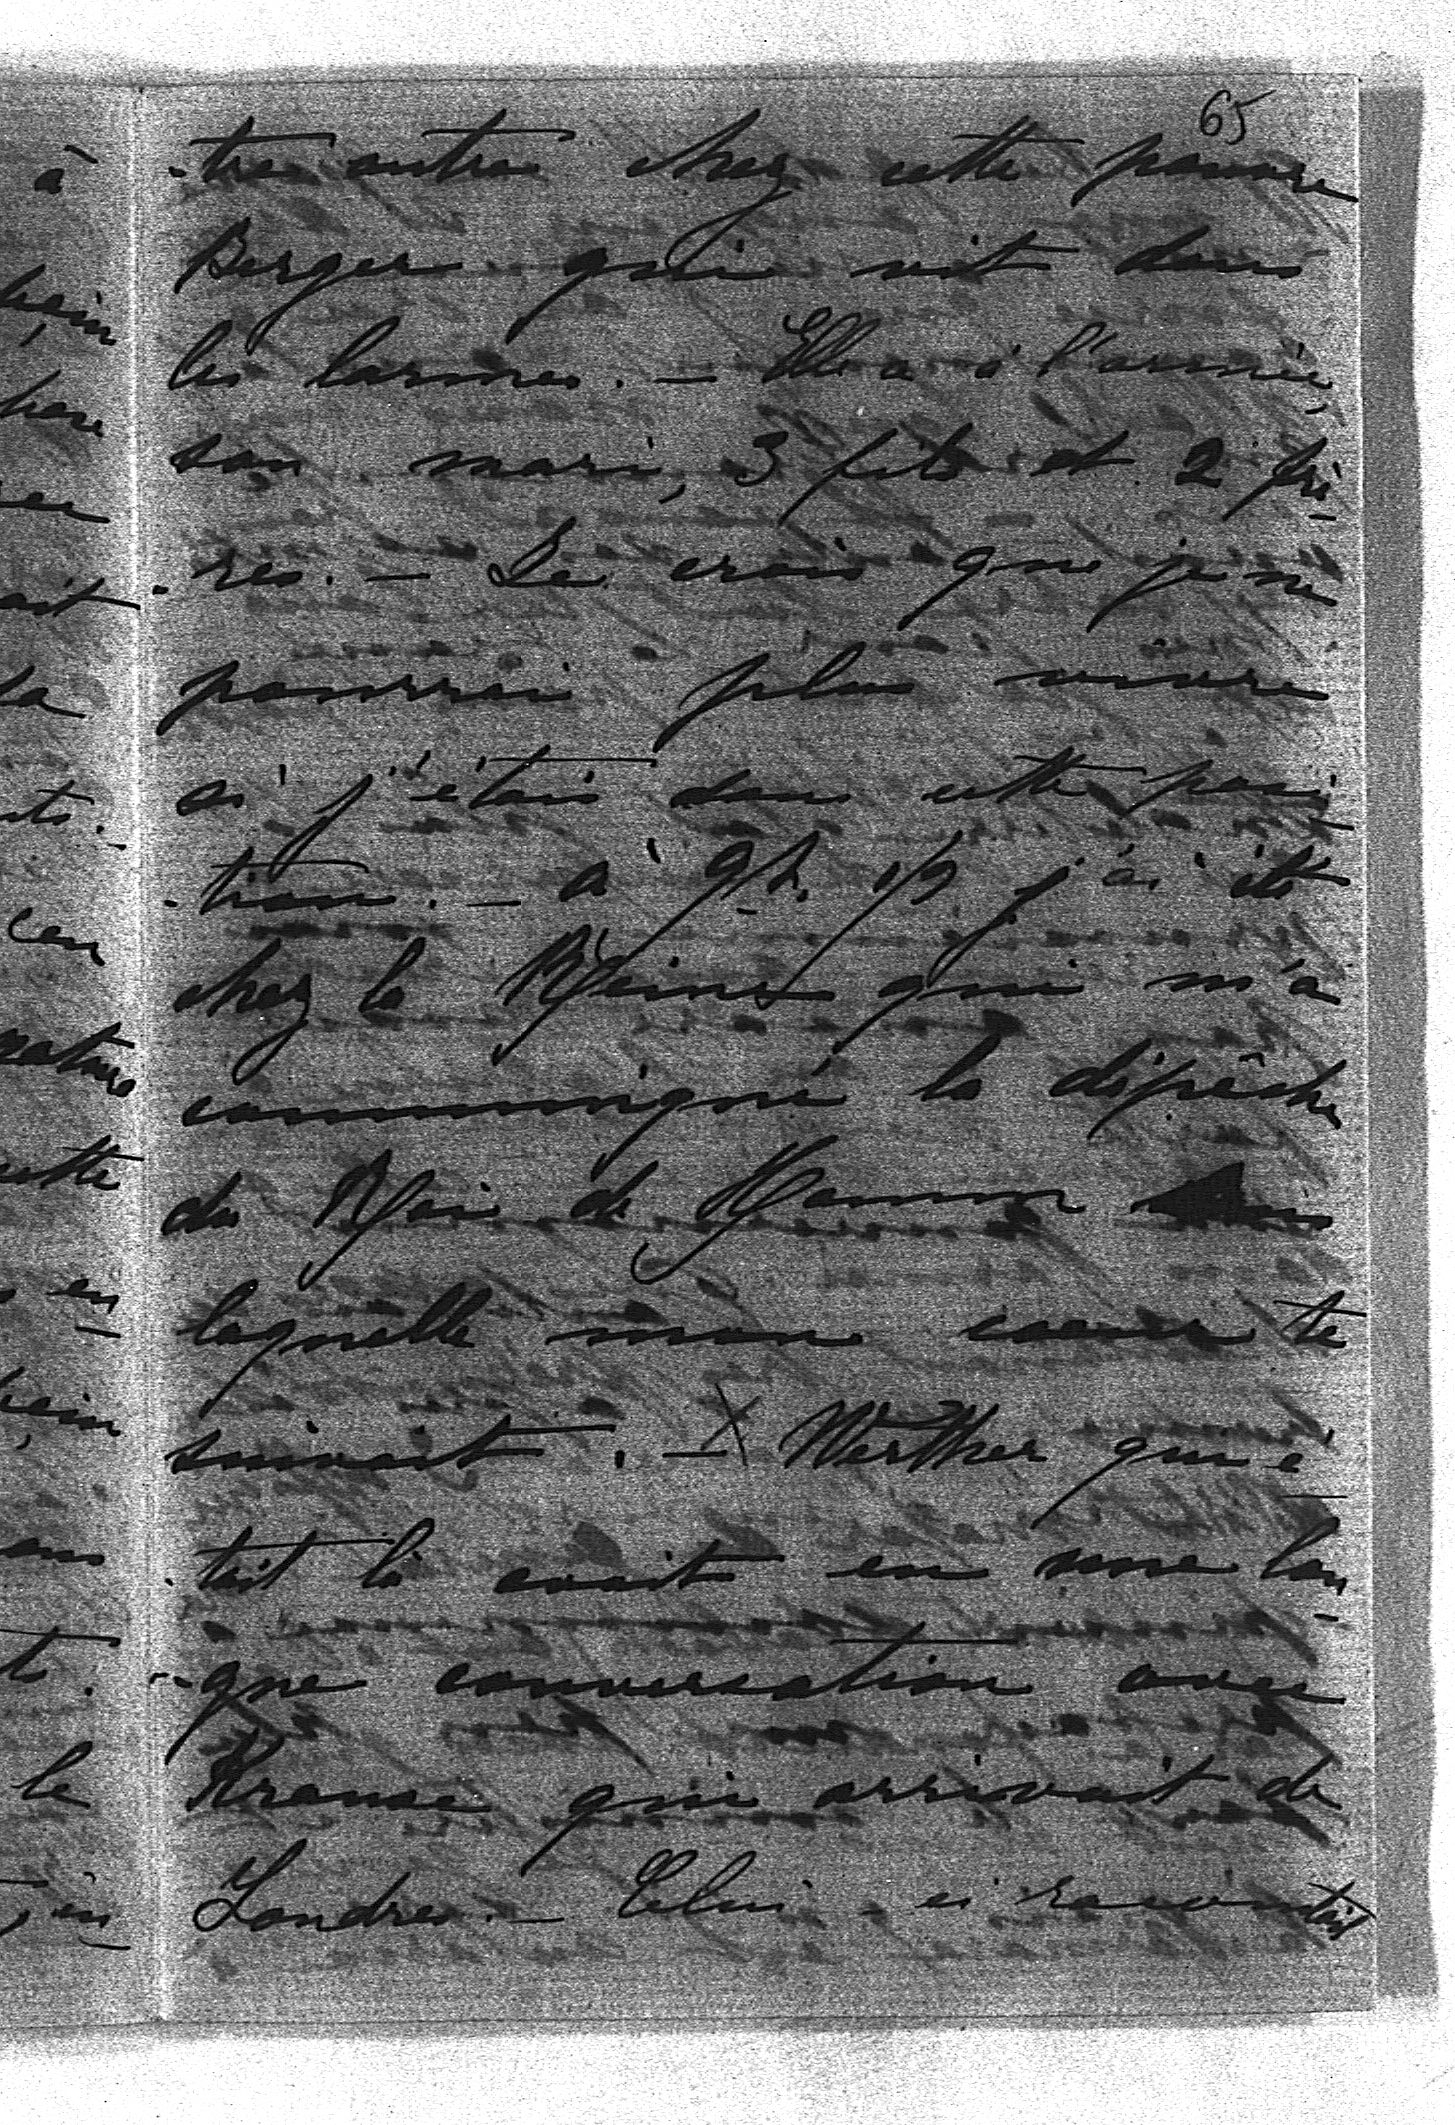 65
-tre autre chez cette pauvre
Berger qui vit dans
les larmes. — Elle a à l'armée,
son mari, 3 fils et 2 frè-
-res. — Je crois que je ne
pourrai plus vivre
si j'étais dans cette posi-
-tion. — à 9 h. 1/2 j'ai été
chez la Reine qui m'a
communiqué la dépêche
du Roi de
laquelle mon coeur te
suivait. — X Werther qui é-
-tait là avait eu une lon-
-gue conversation avec
Krause qui arrivait de
Londres. — Celui-ci racontait
à
ait
en
cette
en
le